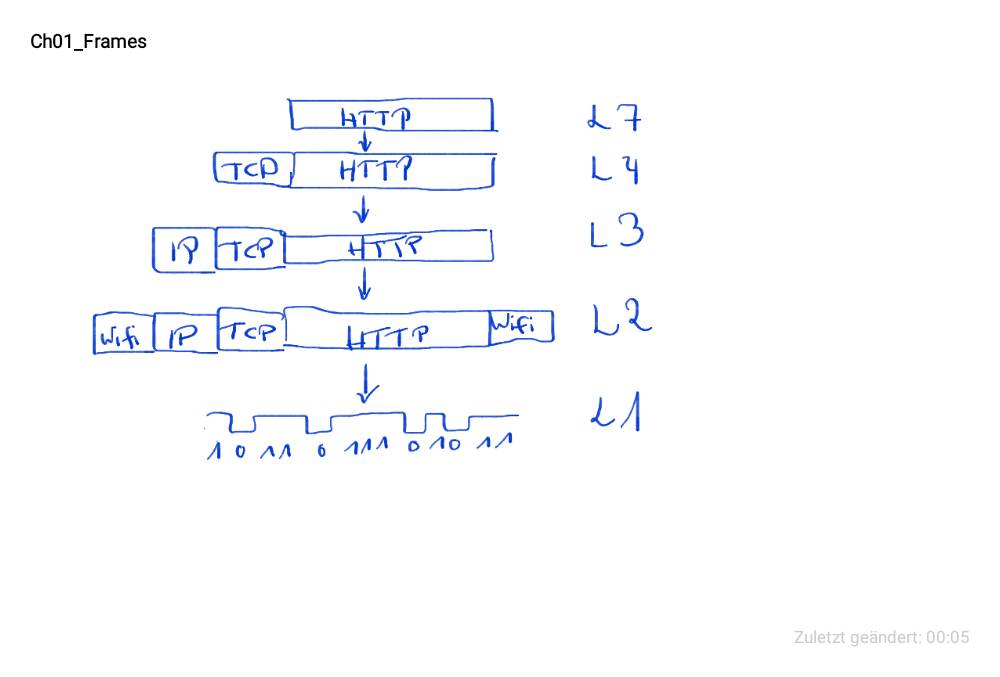 Ch01_Frames
HTTP L7
TCP HTTP L4
IP TCP HTTP L3
Wifi IP TCP HTTP Wifi L2
L1
1 0 11 0 111 0 10 11
Zuletzt geändert: 00:05